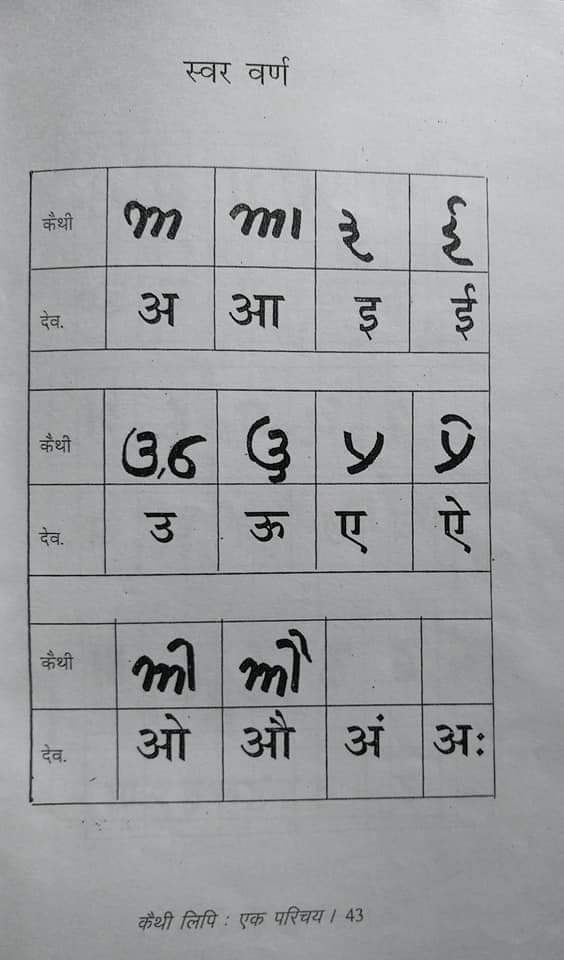 स्वर वर्ण
कैथी 𑂃 𑂄 𑂅 𑂆
देव. अ आ इ ई
कैथी 𑂇, 𑂈 𑂉 𑂊
देव. उ ऊ ए ऐ
कैथी 𑂋 𑂌
देव. ओ औ अं अः
कैथी लिपि : एक परिचय । 43